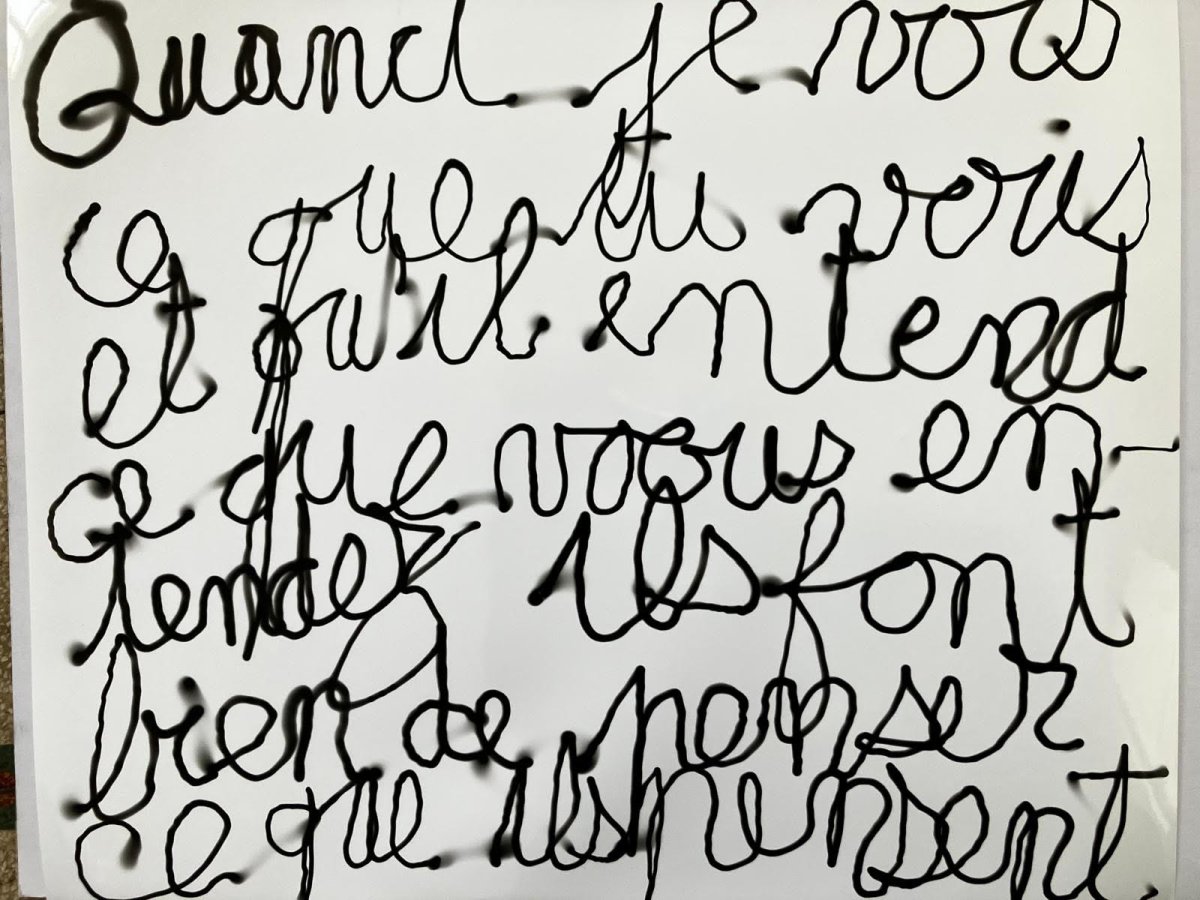 Quand je vois
ce que tu vois
et qu'il entend
ce que vous en-
tendez ils font
bien de penser
ce que ils pensent